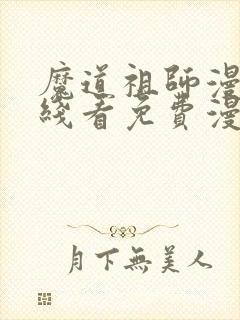 魔道祖師漫
綫看免費漫
月下無美人